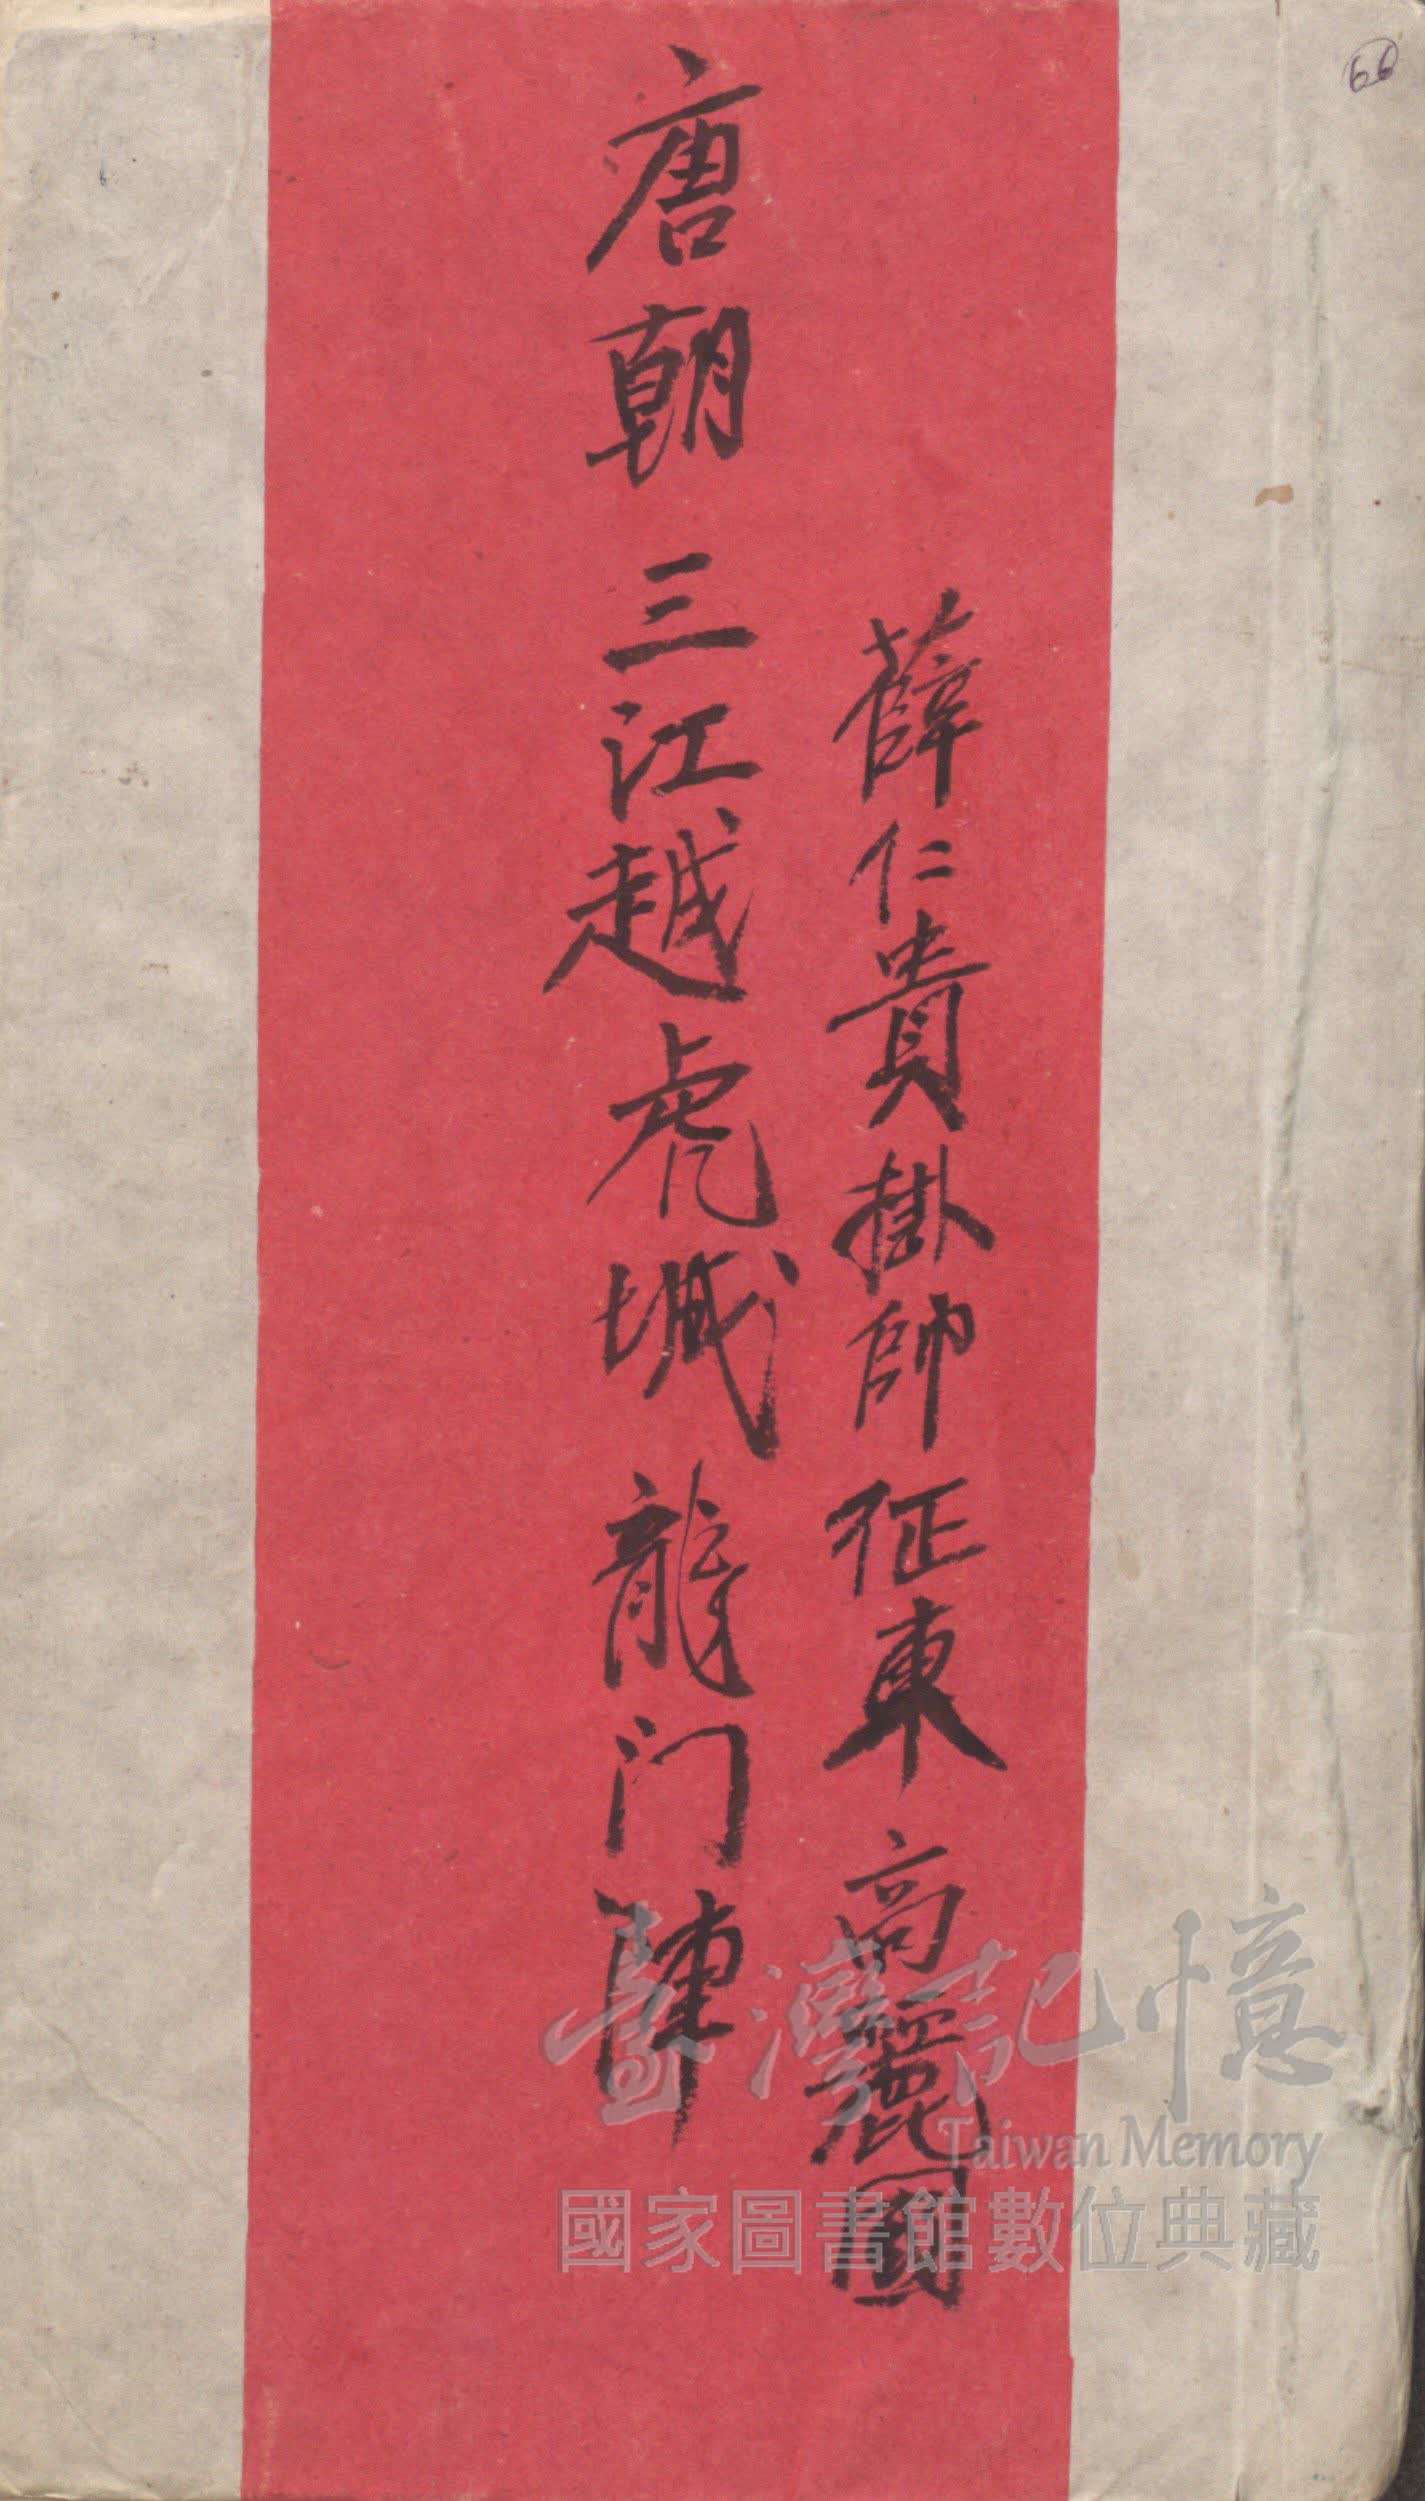 66
薛仁貴掛帥征東高麗國
唐朝三江越虎城龍门陣
臺灣記憶
Taiwan Memory
國家圖書館數位典藏